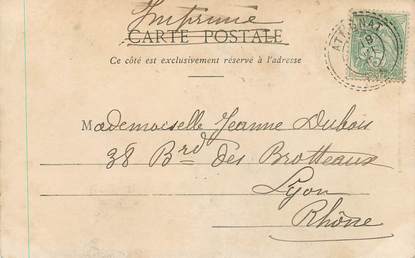 Imprimé
CARTE POSTALE
Ce côté est exclusivement réservé à l'adresse
ATTIGNAT
Mademoiselle Jeanne Dubois
38 Brd des Brotteaux
Lyon
Rhône